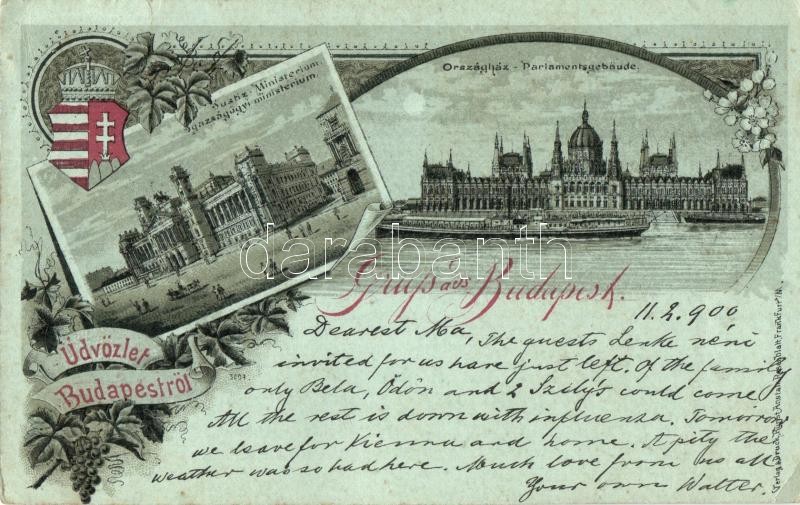 Országház - Parlamentsgebäude.
Justiz Ministerium.
Igazságügyi ministerium.
darabanth
Gruß aus Budapest.
11.2.900
Üdvözlet
Budapestről
Dearest Ma, The guests Lenke néni
invited for us have just left. Of the family
only Bela, Ödön and 2 Szilys could come
All the rest is down with influenza. Tomorrow
we leave for Vienna and home. A pity the
weather was so bad here. Much love from us all
Your own Walter.